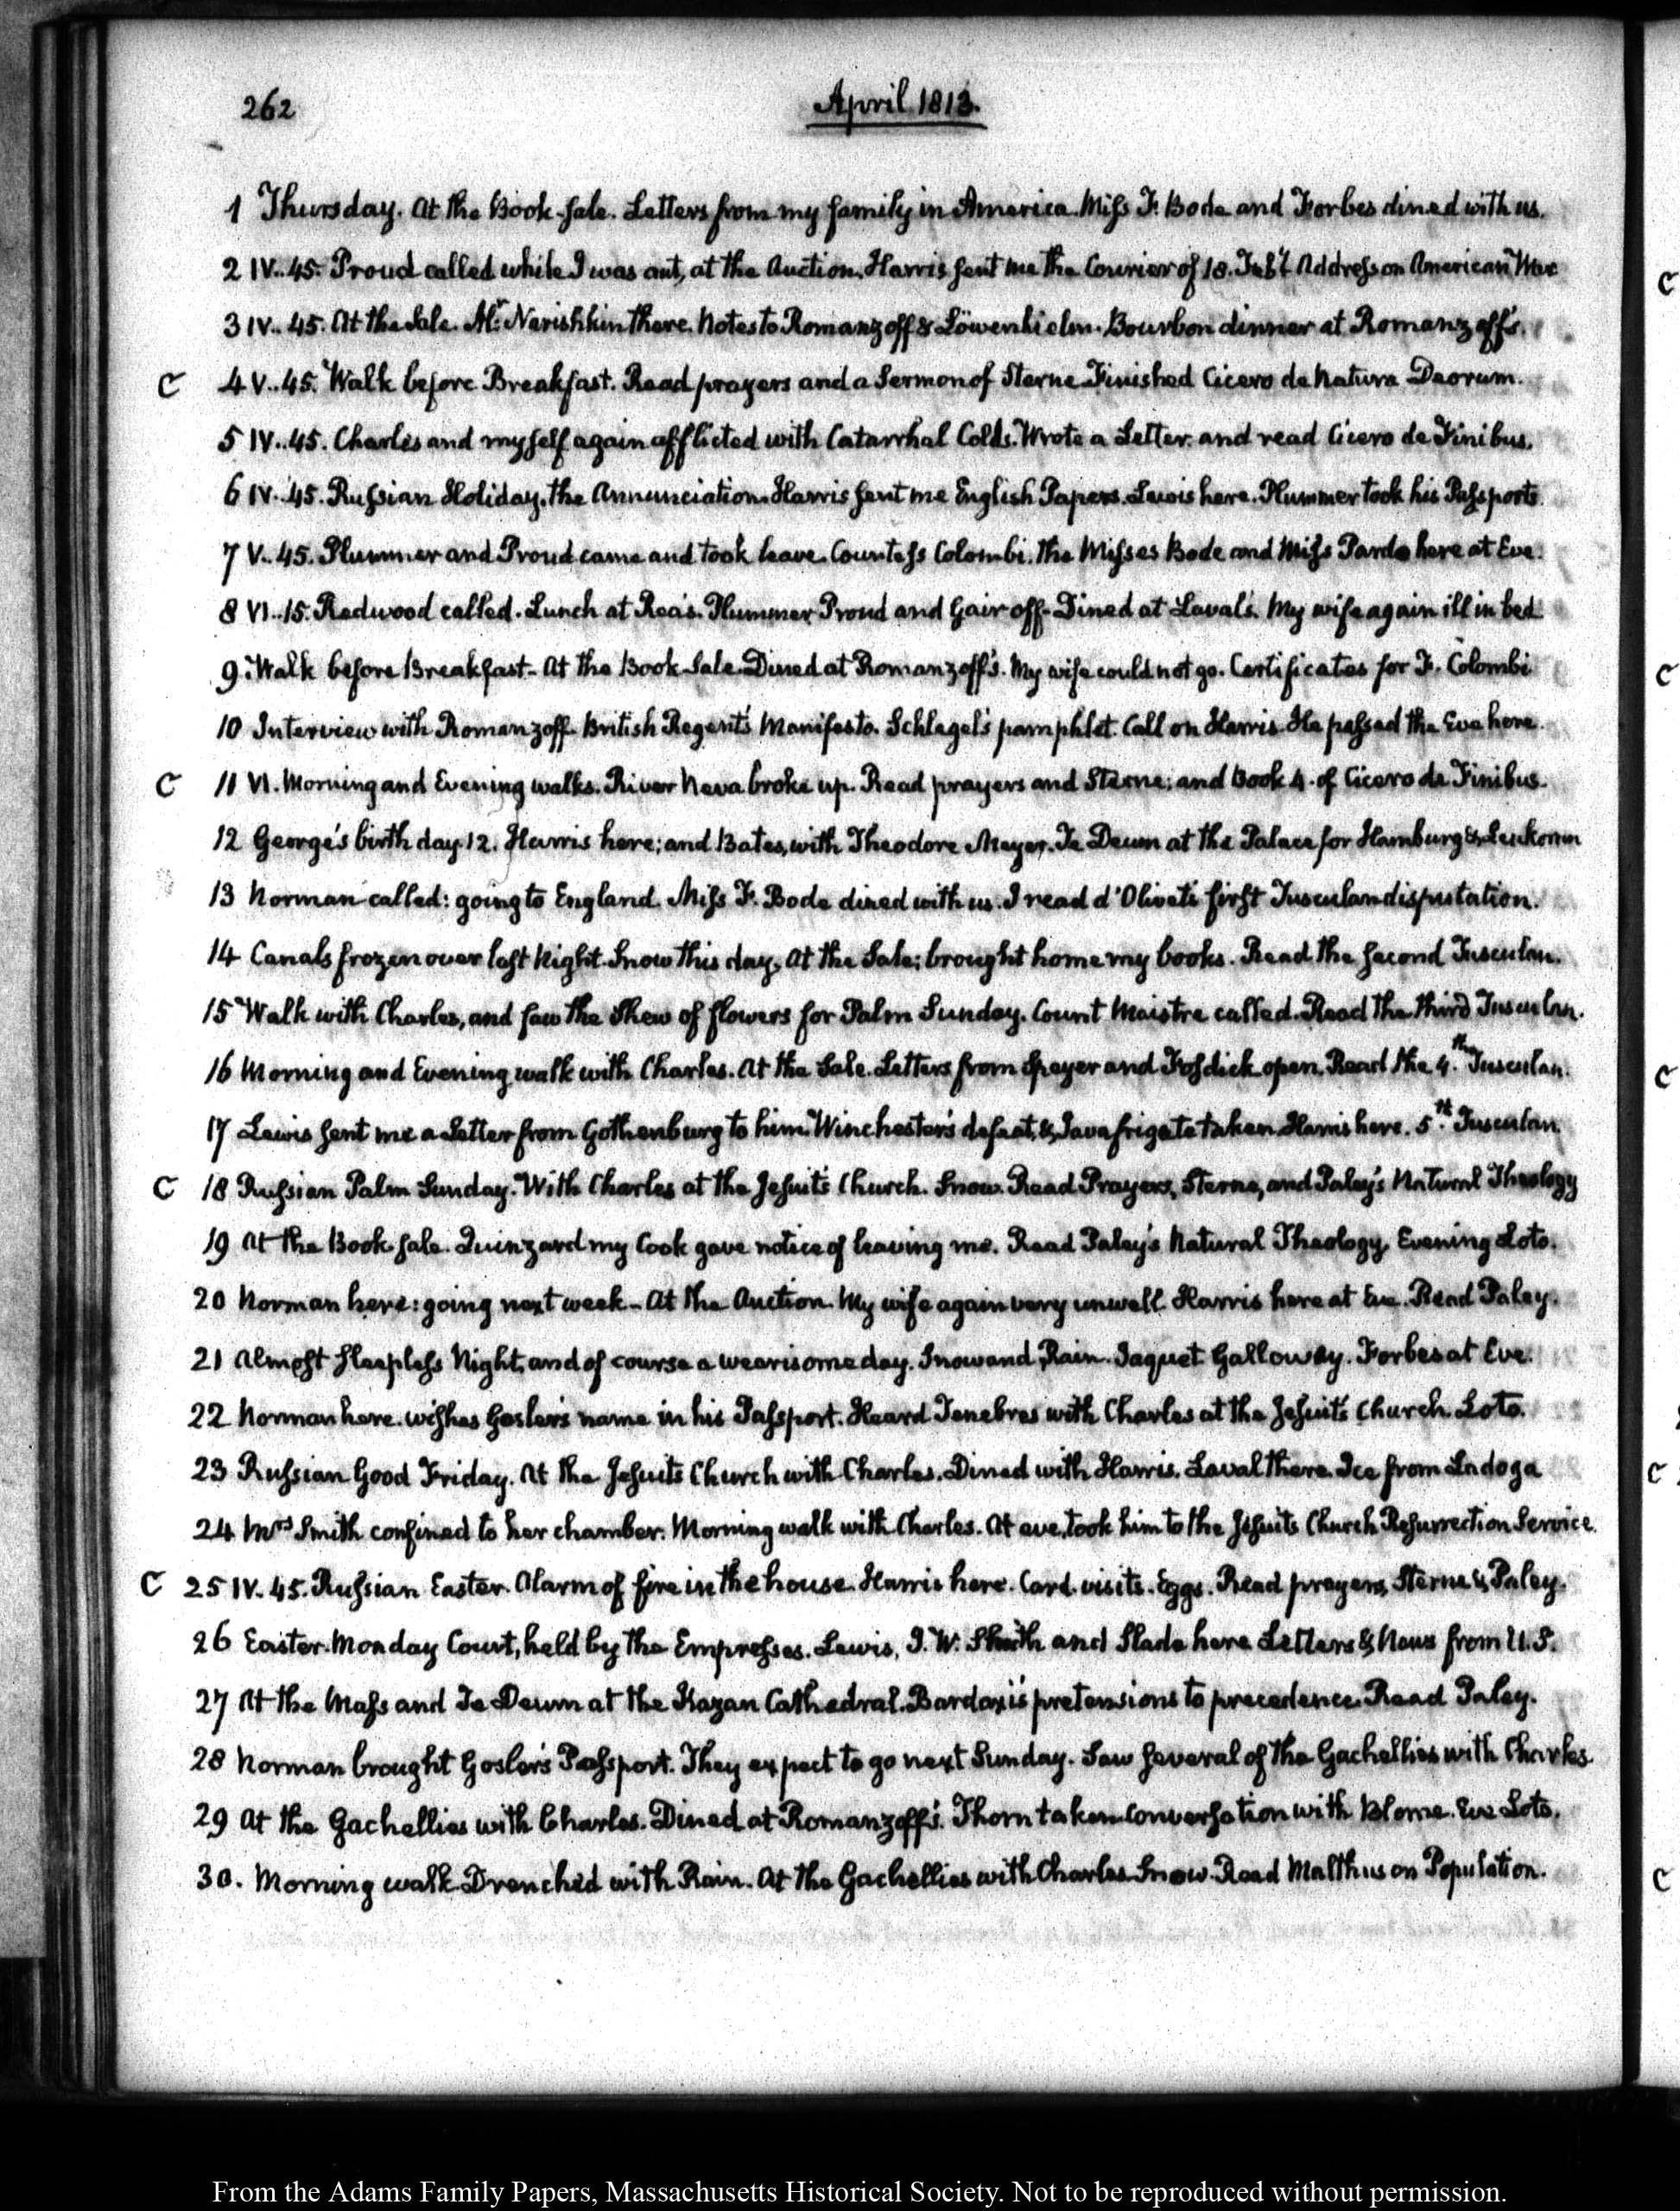 262
April 1813.
1 Thursday. At the Book-sale. Letters from my family in America. Miss F. Bode and Forbes dined with us.
2 IV..45. Proud called while I was out, at the Auction. Harris sent me the Courier of 18. Feby. Address on American War
3 IV..45. At the Sale. Mr: Narishkin there. Notes to Romanzoff & Löwenhielm. Bourbon dinner at Romanzoff's.
C 4 V..45. Walk before Breakfast. Read prayers and a Sermon of Sterne. Finished Cicero de Natura Deorum.
5 IV..45. Charles and myself again afflicted with Catarrhal Colds. Wrote a Letter: and read Cicero de Finibus.
6 IV..45. Russian Holiday, the Annunciation. Harris sent me English Papers. Lewis here. Plummer took his Passports.
7 V..45. Plummer and Proud came and took leave. Countess Colombi. The Misses Bode and Miss Pardo here at Eve.
8 VI..15. Redwood called. Lunch at Rea's. Plummer Proud and Gair off. Dined at Laval's. My wife again ill in bed
9. Walk before Breakfast - At the Book Sale. Dined at Romanzoff's. My wife could not go. Certificates for F. Colombi
10 Interview with Romanzoff. British Regent's Manifesto. Schlegel's pamphlet. Call on Harris. He passed the Eve here.
C 11 VI. Morning and Evening walks. River Neva broke up. Read prayers and Sterne: and Book 4. of Cicero de Finibus.
12 George's birth day. 12. Harris here; and Bates, with Theodore Meyer. Te Deum at the Palace for Hamburg &
13 Norman called: going to England. Miss F. Bode dined with us. I read d'Olivet's first Tusculan disputation.
14 Canals frozen over last Night. Snow this day. At the Sale; brought home my books. Read the second Tusculan.
15 Walk with Charles, and saw the Shew of flowers for Palm Sunday. Count Maistre called. Read the third Tusculan.
16 Morning and Evening walk with Charles. At the Sale. Letters from Speyer and Fosdick open. Read the 4.th Tusculan.
17 Lewis sent me a Letter from Gothenburg to him. Winchester's defeat, & Java frigate taken. Harris here. 5.th Tusculan
C 18 Russian Palm Sunday. With Charles at the Jesuits Church. Snow. Read Prayers, Sterne, and Paley's Natural Theology
19 At the Book sale. Quinzard my Cook gave notice of leaving me. Read Paley's Natural Theology. Evening Loto.
20 Norman here: going next week - At the Auction. My wife again very unwell. Harris here at Eve. Read Paley.
21 Almost sleepless Night, and of course a wearisome day. Snow and Rain. Jaquet. Galloway. Forbes at Eve.
22 Norman here. wishes Gosler's name in his Passport. Heard Tenebres with Charles at the Jesuits Church. Loto.
23 Russian Good Friday. At the Jesuits Church with Charles. Dined with Harris. Laval there. Ice from Ladoga
24 Mrs Smith confined to her chamber. Morning walk with Charles. At eve, took him to the Jesuits Church Resurrection Service.
C 25 IV. 45. Russian Easter. Alarm of fire in the house. Harris here. Card visits. Eggs. Read prayers, Sterne & Paley.
26 Easter-Monday Court, held by the Empresses. Lewis, I. W. Smith and Slade here Letters & News from U.S.
27 At the Mass and Te Deum at the Kazan Cathedral. Bardaxi's pretensions to precedence. Read Paley.
28 Norman brought Gosler's Passport. They expect to go next Sunday. Saw several of the Gachellies with Charles.
29 At the Gachellies with Charles. Dined at Romanzoff's. Thorn taken. Conversation with Blome. Eve Loto.
30. Morning walk. Drenched with Rain. At the Gachellies with Charles. Snow. Read Malthus on Population.
From the Adams Family Papers, Massachusetts Historical Society. Not to be reproduced without permission.